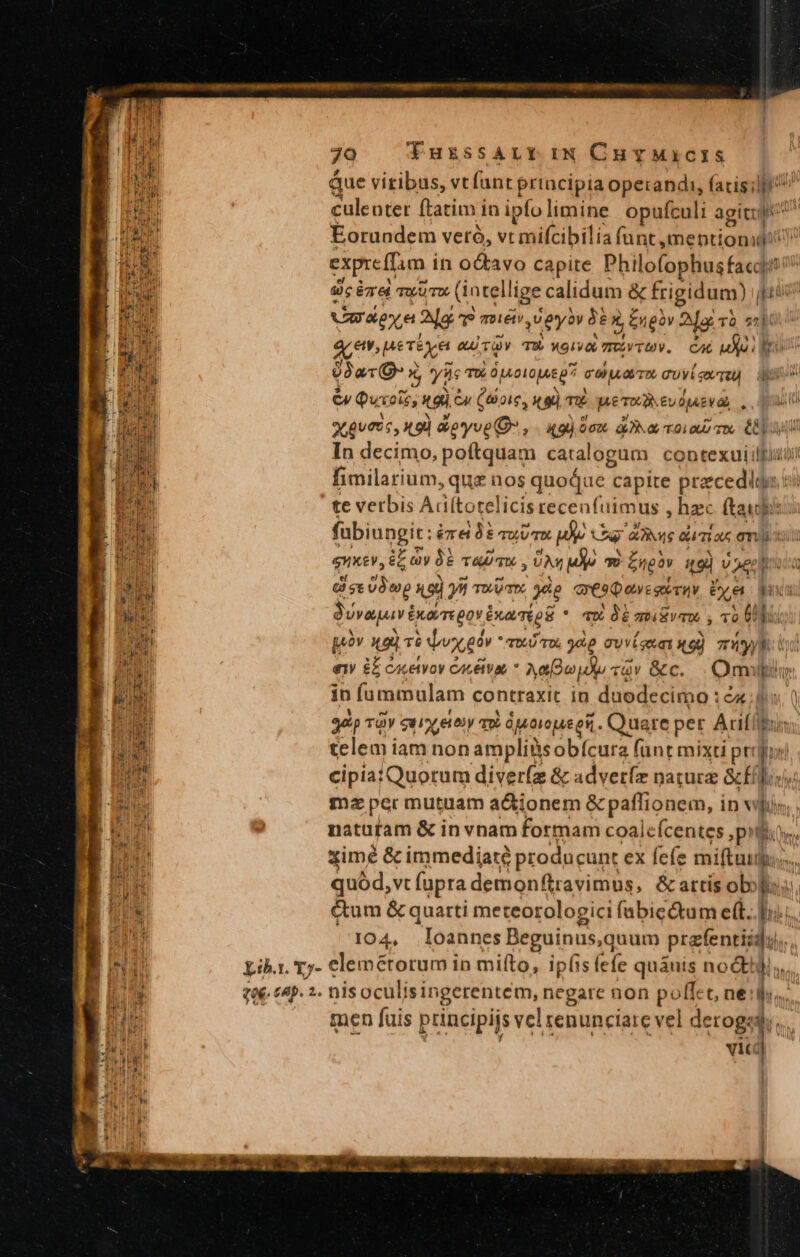 70 THESSALI IN CHYMICIS
que viribus, vt sunt principia operandi, satis
culenter statim in ipso limine opusculi agit
Eorundem verò, vt miscibilia sunt, mention
expressam in octavo capite Philosophus fac
ὡς ἐπεὶ ταῦτα (intellige calidum & frigidum)
ὑπάρχει διὰ τὸ ποιεῖν, ὑγρὸν δὲ ϗ ξηρὸν διὰ τὸ
μετέχει αὐτῶν τὰ κοινὰ πάντων. ἐκ μὲν
ὕδατος ϗ γῆς τὰ ὁμοιομερῆ σώματα συνίσταται
ἐν φυτοῖς, καὶ ἐν ζώοις, καὶ τὰ μεταλλευόμενα
χρυσὸς, καὶ ἄργυρος, καὶ ὅσα ἄλλα τοιαῦτα
In decimo, postquam catalogum contexui
similarium, quæ nos quoque capite præced
te verbis Aristotelicis recensuimus, hæc sta
subiungit: ἐπεὶ δὲ ταῦτα μὲν ὑπ' ἄλλης αἰτίας
ἐξ ὧν δὲ ταῦτα, ὕλη μὲν τὸ ξηρὸν καὶ
ὥστε ὕδωρ καὶ γῆ ταῦτα γὰρ προφανεστάτην ἔχει
δύναμιν ἑκάτερον ἑκατέρου· τὰ δὲ ποιοῦντα, τὸ
μὸν καὶ τὸ ψυχρὸν· ταῦτα γὰρ συνίστησι καὶ
ἐξ ἐκείνων ἐκεῖνα· λάβωμεν τῶν &c. Om
in summulam contraxit in duodecimo: ἐκ
γὰρ τῶν στοιχείων τὰ ὁμοιομερῆ. Quare per Arist
telem iam non ampliùs obscura sunt mixti pr
cipia: Quorum diversæ & adversæ naturæ &
mæ per mutuam actionem & passionem, in v
naturam & in vnam formam coalescentes, p
ximè & immediatè producunt ex sese mistu
quòd, vt supra demonstravimus, & artis ob
ctum & quarti meteorologici subiectum est.
104, Ioannes Beguinus, quum præsenti
Lib. 1. Ty- elemētorum in misto, ipsis sese quāuis noct
cap. 2. nis oculis ingerentem, negare non posset, ne
men suis principijs vel renunciare vel derog